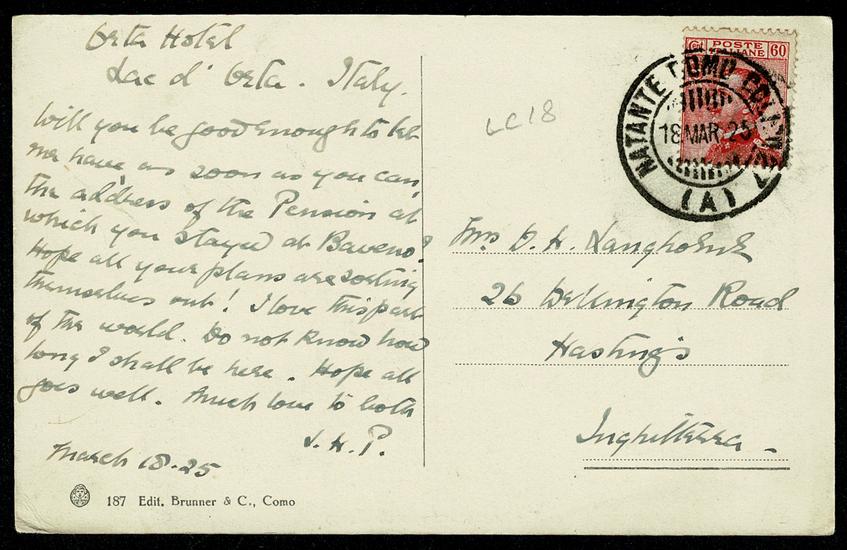 Orta Hotel
Lac d' Orta. Italy.
Will you be good enough to let
me have as soon as you can,
the address of the Pension at
which you stayed at Baveno?
Hope all your plans are sorting
themselves out! I love this part
of the world. Do not know how
long I shall be here. Hope all
goes well. Much love to both
J. H. P.
March 18.25
187 Edit. Brunner & C., Como
LC18
POSTE
ITALIANE
60
NATANTE COMO
18 MAR 25
(A)
Mrs D. H.
26 Wellington Road
Hastings
Inghilterra -